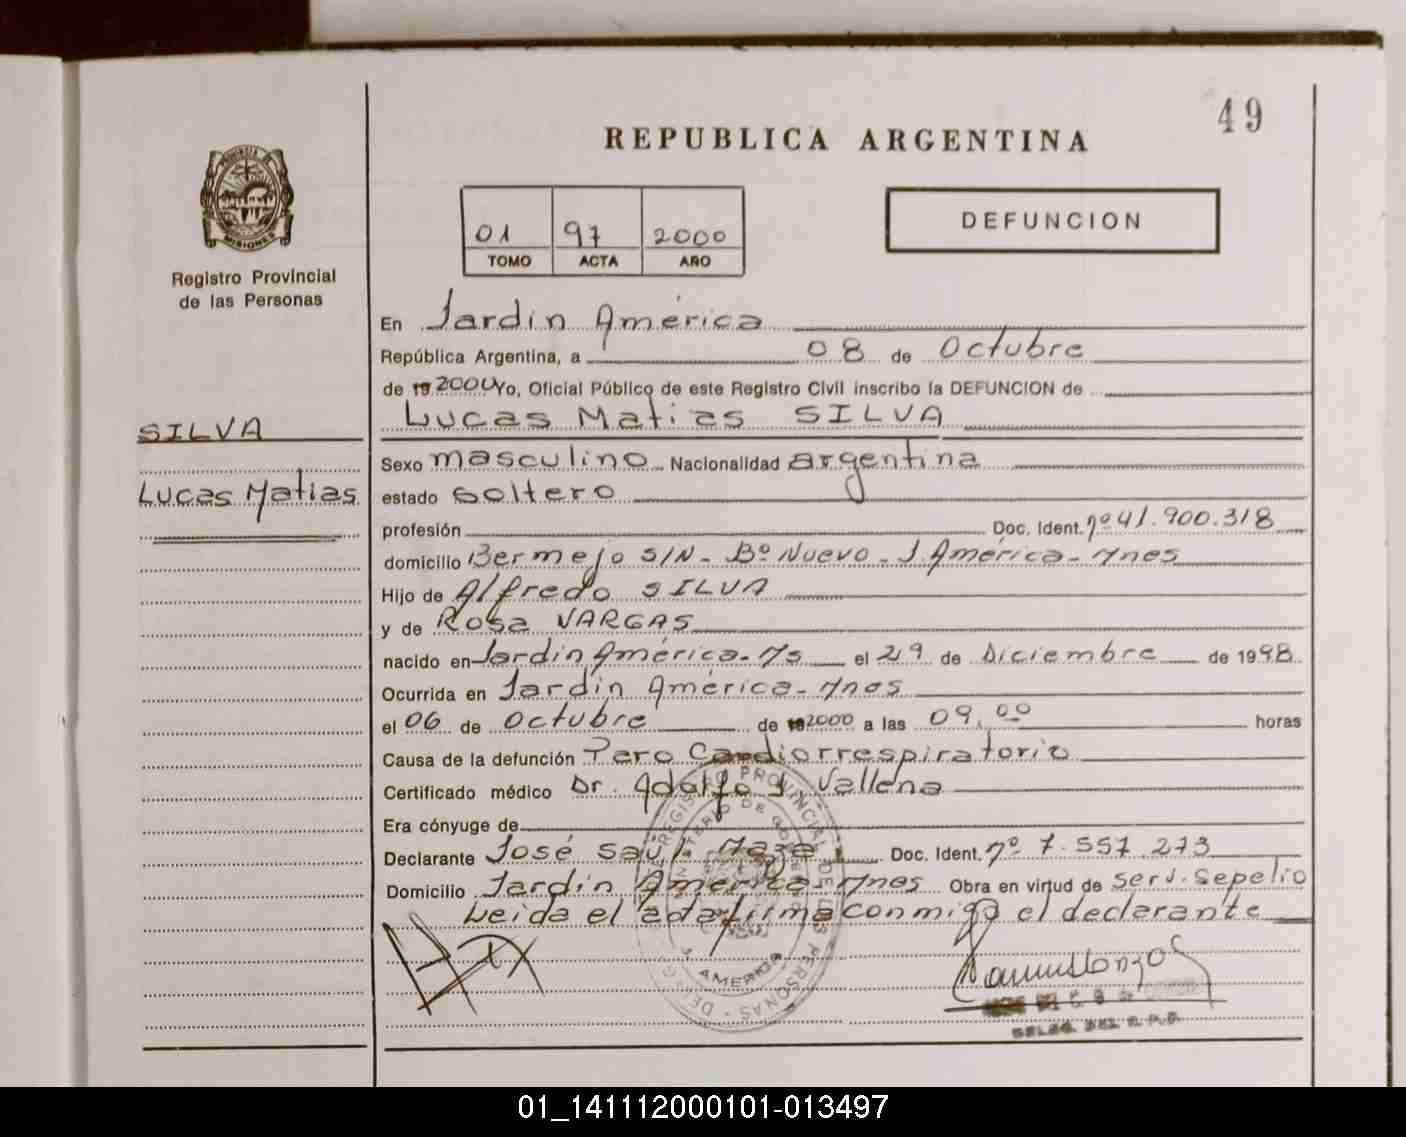 49
REPUBLICA ARGENTINA
PROVINCIA DE
MISIONES
Registro Provincial
de las Personas
01 97 2000
TOMO ACTA AÑO
DEFUNCION
SILVA
Lucas Matias
En Jardin América
República Argentina, a 08 de Octubre
de 19 2000 Yo, Oficial Público de este Registro Civil inscribo la DEFUNCION de
Lucas Matias SILVA
Sexo masculino Nacionalidad argentina
estado soltero
profesión Doc. Ident. nº 41.900.318
domicilio Bermejo S/N - Bº Nuevo - J. América - Mnes
Hijo de Alfredo SILVA
y de Rosa VARGAS
nacido en Jardin América - Ms el 29 de Diciembre de 1998
Ocurrida en Jardin América - Mnes
el 06 de Octubre de 19 2000 a las 09,00 horas
Causa de la defunción Paro Cardiorrespiratorio
Certificado médico Dr. Adolfo J. Vallena
Era cónyuge de
Declarante José Saúl Maza Doc. Ident. nº 7.557.273
Domicilio Jardin América - Mnes Obra en virtud de Serv. Sepelio
Leida el acta firma conmigo el declarante
REGISTRO PROVINCIAL DE LAS PERSONAS
MINISTERIO DE GOBIERNO
J. AMERICA
DELEG. DEL R.P.P.
01_141112000101-013497